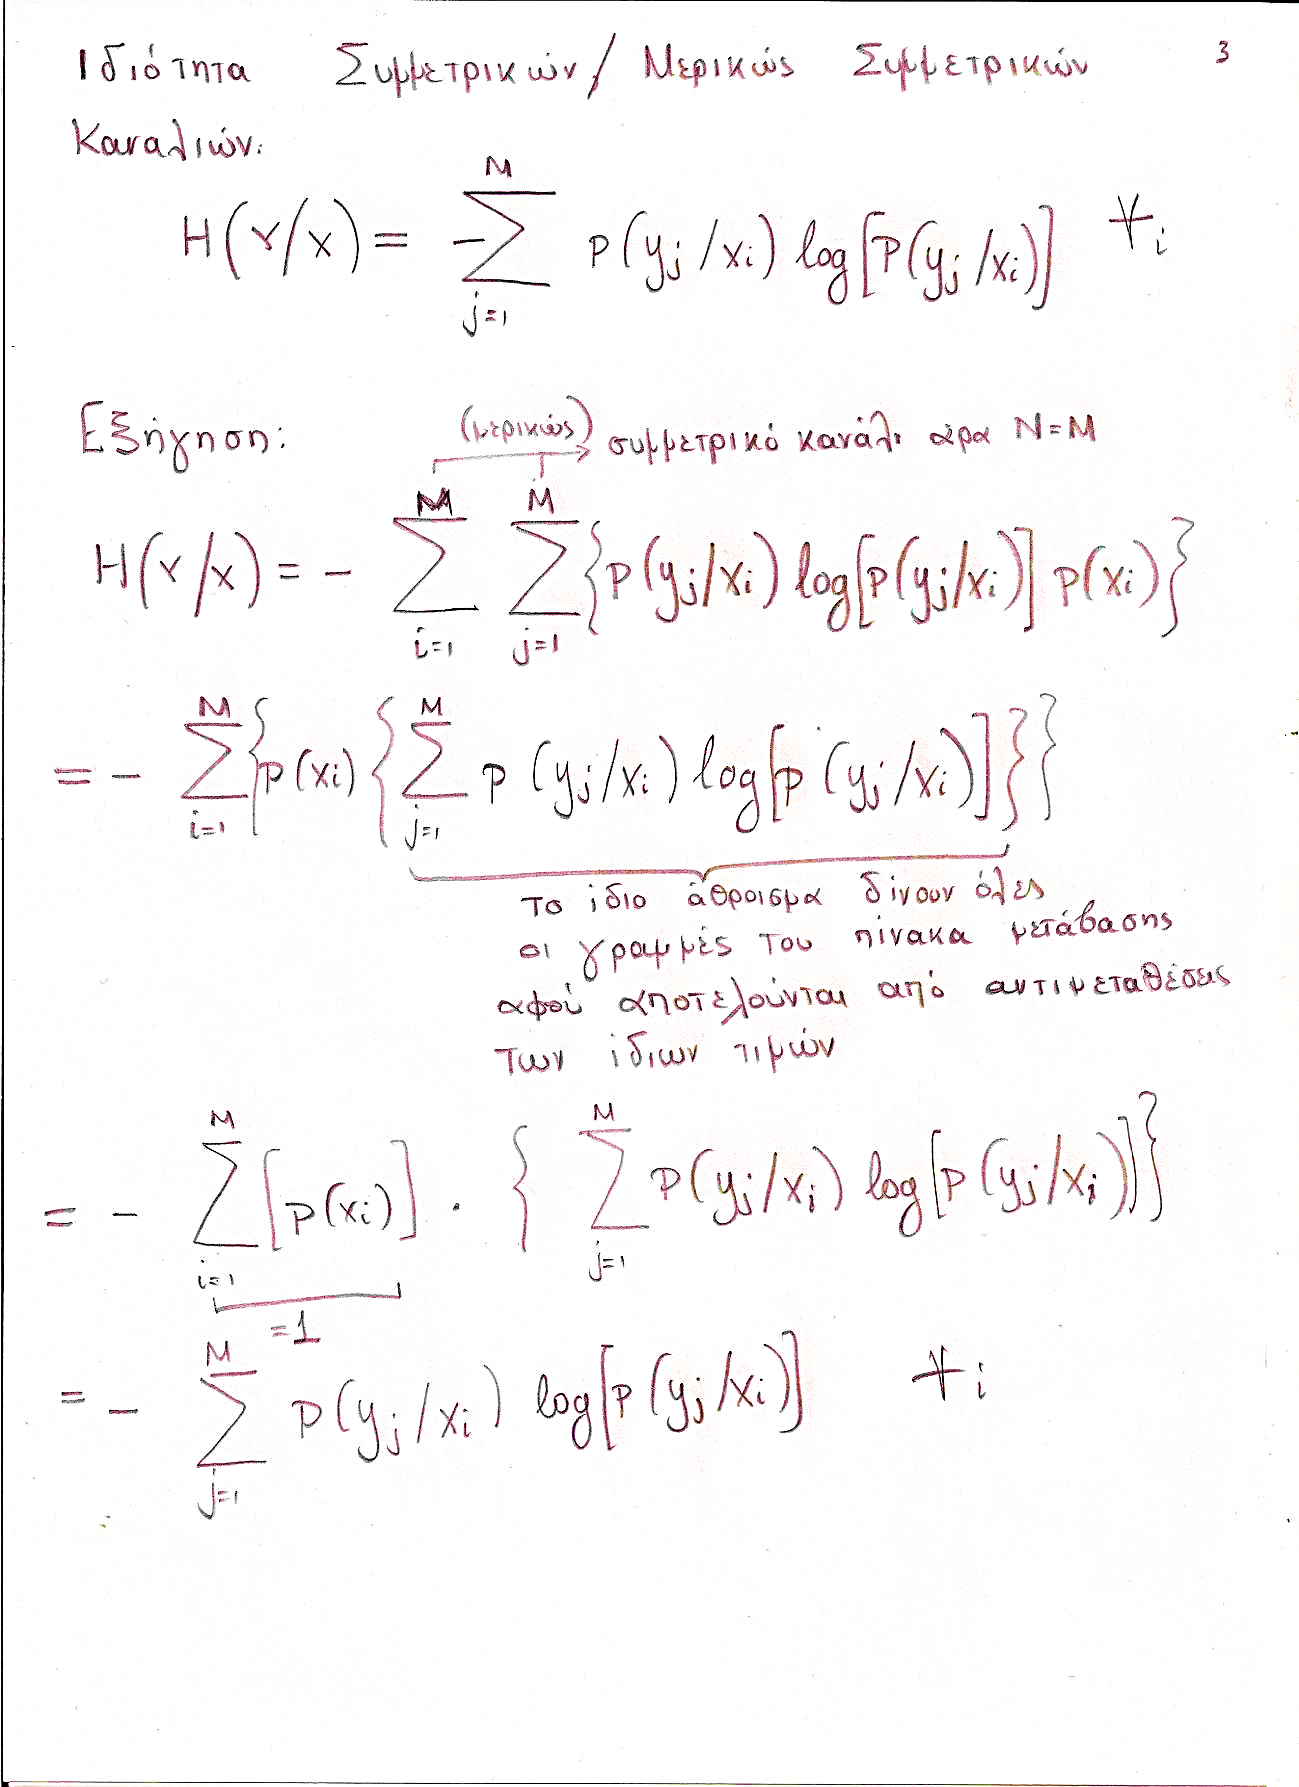 Ιδιότητα Συμμετρικών/ Μερικώς Συμμετρικών 3
Καναλιών:
H(Y/X) = -∑_{j=1}^{M} P(y_j/x_i) log[P(y_j/x_i)] ∀i
Εξήγηση: (μερικώς) συμμετρικό κανάλι άρα N=M
H(Y/X) = - ∑_{i=1}^{M} ∑_{j=1}^{M} {P(y_j/x_i) log[P(y_j/x_i)] P(x_i)}
= - ∑_{i=1}^{M} {P(x_i) {∑_{j=1}^{M} P(y_j/x_i) log[P(y_j/x_i)]}}
το ίδιο άθροισμα δίνουν όλες
οι γραμμές του πίνακα μετάβασης
αφού αποτελούνται από αντιμεταθέσεις
των ίδιων τιμών
= - ∑_{i=1}^{M} [P(x_i)] · {∑_{j=1}^{M} P(y_j/x_i) log[P(y_j/x_i)]}
=1
= - ∑_{j=1}^{M} P(y_j/x_i) log[P(y_j/x_i)] ∀i